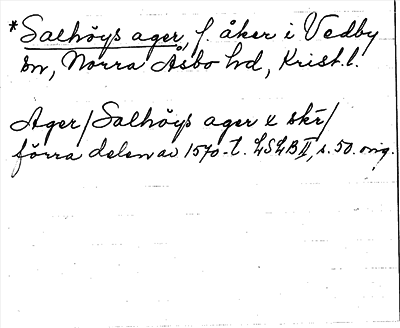 *Salhöys ager, f. åker i Vedby
sn, Norra Åsbo hd, Krist.l.
Ager/Salhöys ager x skr/
förra delen av 1570-t. LSLB II, s. 50. orig.